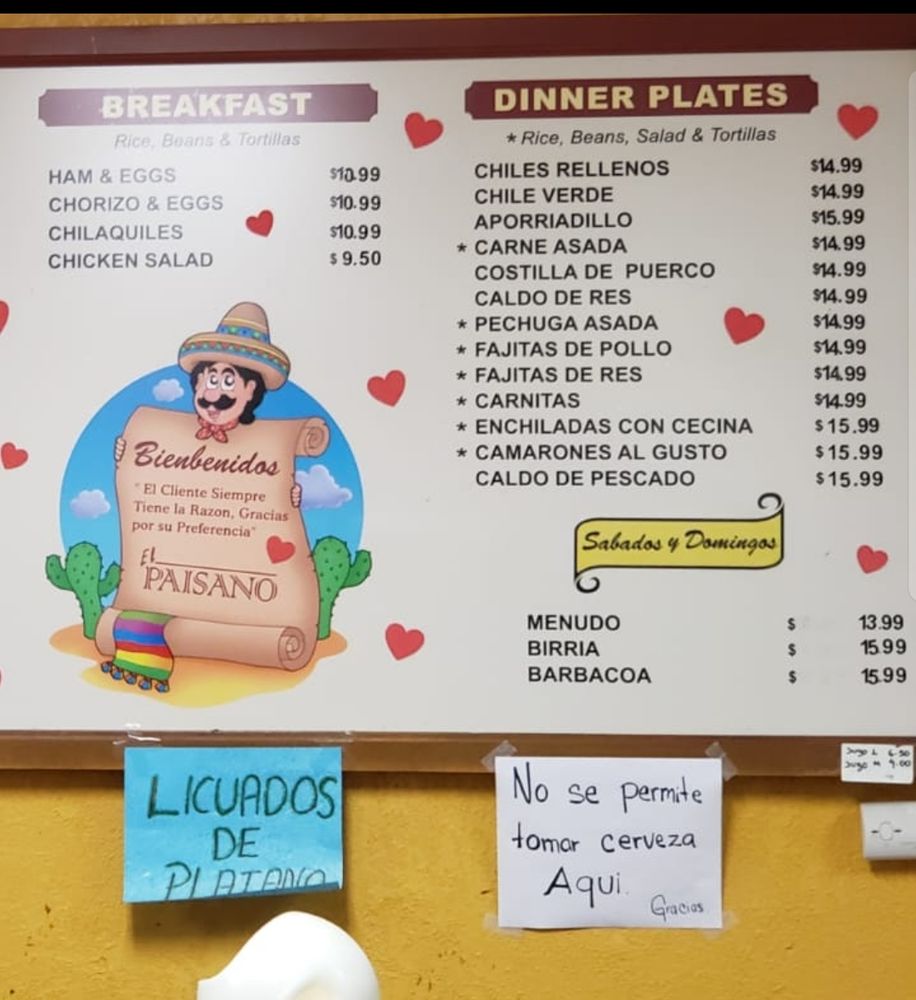 BREAKFAST
Rice, Beans & Tortillas
HAM & EGGS $10.99
CHORIZO & EGGS $10.99
CHILAQUILES $10.99
CHICKEN SALAD $ 9.50
Bienbenidos
"El Cliente Siempre
Tiene la Razon, Gracias
por su Preferencia"
El
PAISANO
DINNER PLATES
* Rice, Beans, Salad & Tortillas
CHILES RELLENOS $14.99
CHILE VERDE $14.99
APORRIADILLO $15.99
* CARNE ASADA $14.99
COSTILLA DE PUERCO $14.99
CALDO DE RES $14.99
* PECHUGA ASADA $14.99
* FAJITAS DE POLLO $14.99
* FAJITAS DE RES $14.99
* CARNITAS $14.99
* ENCHILADAS CON CECINA $15.99
* CAMARONES AL GUSTO $15.99
CALDO DE PESCADO $15.99
Sabados y Domingos
MENUDO $ 13.99
BIRRIA $ 15.99
BARBACOA $ 15.99
LICUADOS
DE
PLATANO
No se permite
tomar cerveza
Aqui.
Gracias
Jugo L 6.50
Jugo M 9.00